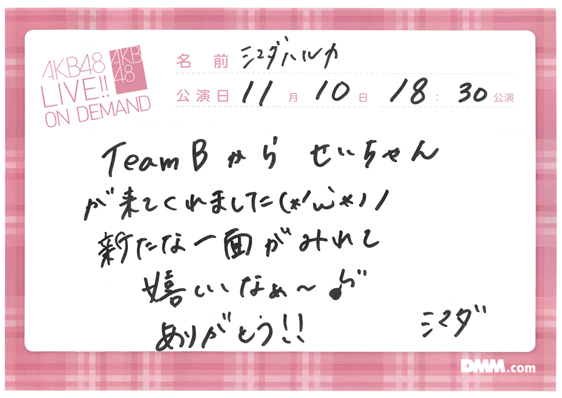 AKB48
LIVE!!
ON DEMAND
AKB
48
名前 シマダハルカ
公演日 11月10日 18:30公演
Team Bから せいちゃん
が来てくれました(*'ω'*)ノ
新たな一面がみれて
嬉しいなぁ〜♪
ありがとう!!
シマダ
DMM.com